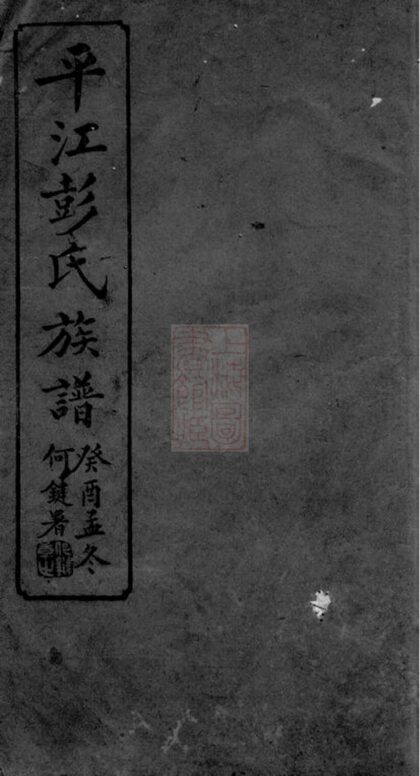 平江彭氏族譜
癸酉孟冬
何鍵署
上海圖
書館藏